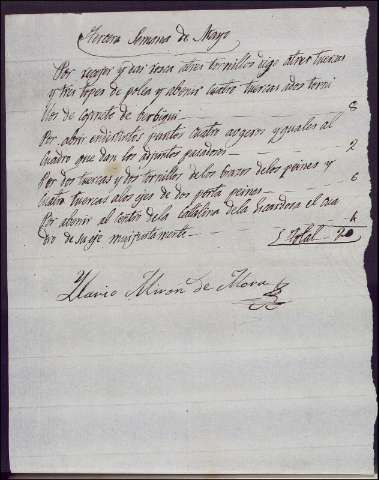 Tercera Semana de Mayo
Por recojer y dar rosca a tres tornillos de eje a tres tuercas
y tres topes de polea y abenir cuatro tuercas a dos torni
llos de cojinete de berbiqui — 8
Por abrir en distintos puntos cuatro augeros yguales al
cuadro que dan los adjuntos pasadores — 2
Por dos tuercas y dos tornillos de los brazos de los peines y
cuatro tuercas a los ejes de dos porta peines — 6
Por abenir al centro de la Catalina de la Yicardosa el cua
dro de su eje mui justamente — 4
Total — 20
Ylario Miron de Mora